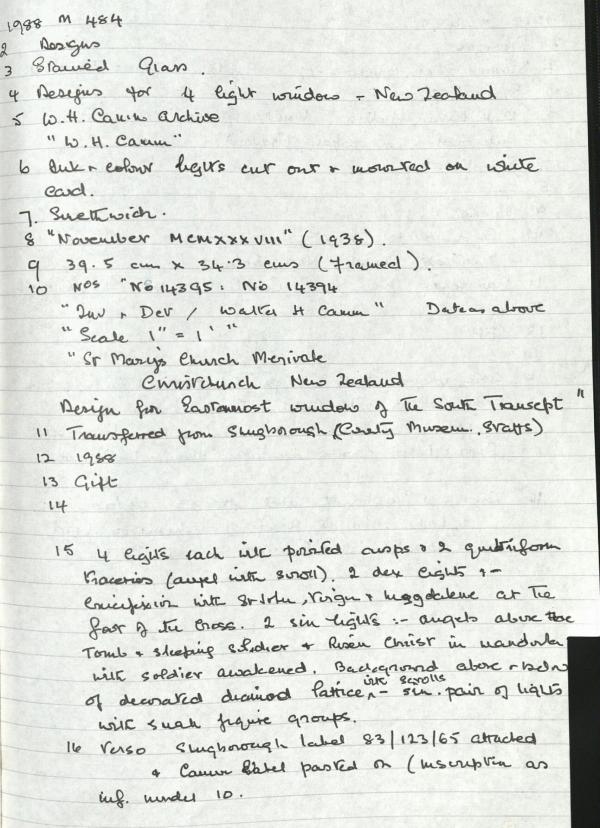 1988 M 484
2 Designs
3 Stained Glass.
4 Designs for 4 light window - New Zealand
5 W.H. Camm Archive
"W. H. Camm"
6 Ink + colour lights cut out + mounted on white
card.
7. Smethwich.
8 "November MCMXXXVIII" (1938).
9 39.5 cm x 34.3 cms (Framed).
10 Nos "No 14395: No 14394
"Inv + Dev / Walter H Camm" Date as above
"Scale 1" = 1' "
"St Mary's Church Merivale
Christchurch New Zealand
Design for Easternmost window of the South Transept"
11 Transferred from Shugborough (County Museum. Staffs)
12 1988
13 Gift
14
15 4 lights each with pointed cusps & 2 quatriform
traceries (angel with scroll). 2 dex lights :-
Crucifixion with St John, Virgin + Magdalene at the
foot of the Cross. 2 sin lights :- angels above the
Tomb + sleeping soldier + Risen Christ in mandorla
with soldier awakened. Background above + below
of decorated diamond lattice with scrolls - sin. pair of lights
with small figure groups.
16 Verso Shugborough label 83/123/65 attached
+ Camm label pasted on (inscription as
inf. under 10.